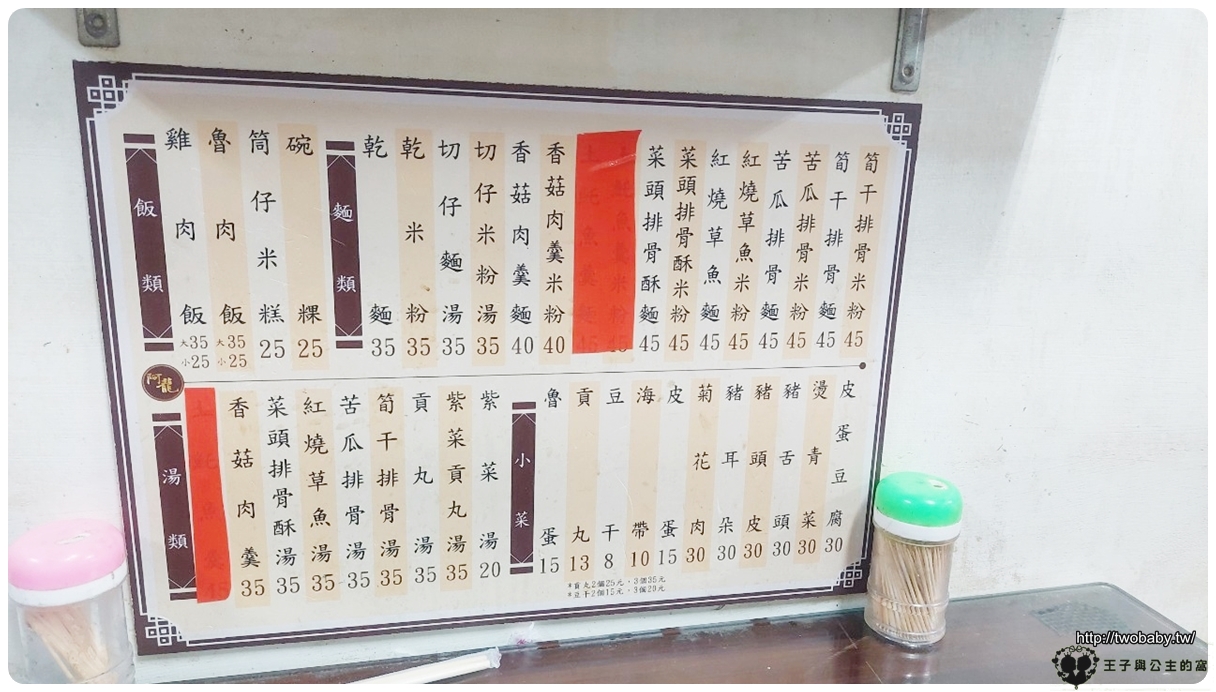 飯類
雞肉飯 大35 小25
魯肉飯 大35 小25
筒仔米糕 25
碗粿 25
麵類
乾麵 35
乾米粉 35
切仔麵湯 35
切仔米粉湯 35
香菇肉羹麵 40
香菇肉羹米粉 40
菜頭排骨酥麵 45
菜頭排骨酥米粉 45
紅燒草魚麵 45
紅燒草魚米粉 45
苦瓜排骨麵 45
苦瓜排骨米粉 45
筍干排骨麵 45
筍干排骨米粉 45
阿龍
湯類
香菇肉羹 35
菜頭排骨酥湯 35
紅燒草魚湯 35
苦瓜排骨湯 35
筍干排骨湯 35
貢丸湯 35
紫菜貢丸湯 35
紫菜湯 20
小菜
魯蛋 15
貢丸 13
豆干 8
海帶 10
皮蛋 15
菊花肉 30
豬耳朵 30
豬頭皮 30
豬舌頭 30
燙青菜 30
皮蛋豆腐 30
*貢丸2個25元，3個35元
*豆干2個15元，3個20元
http://twobaby.tw/
王子與公主的窩